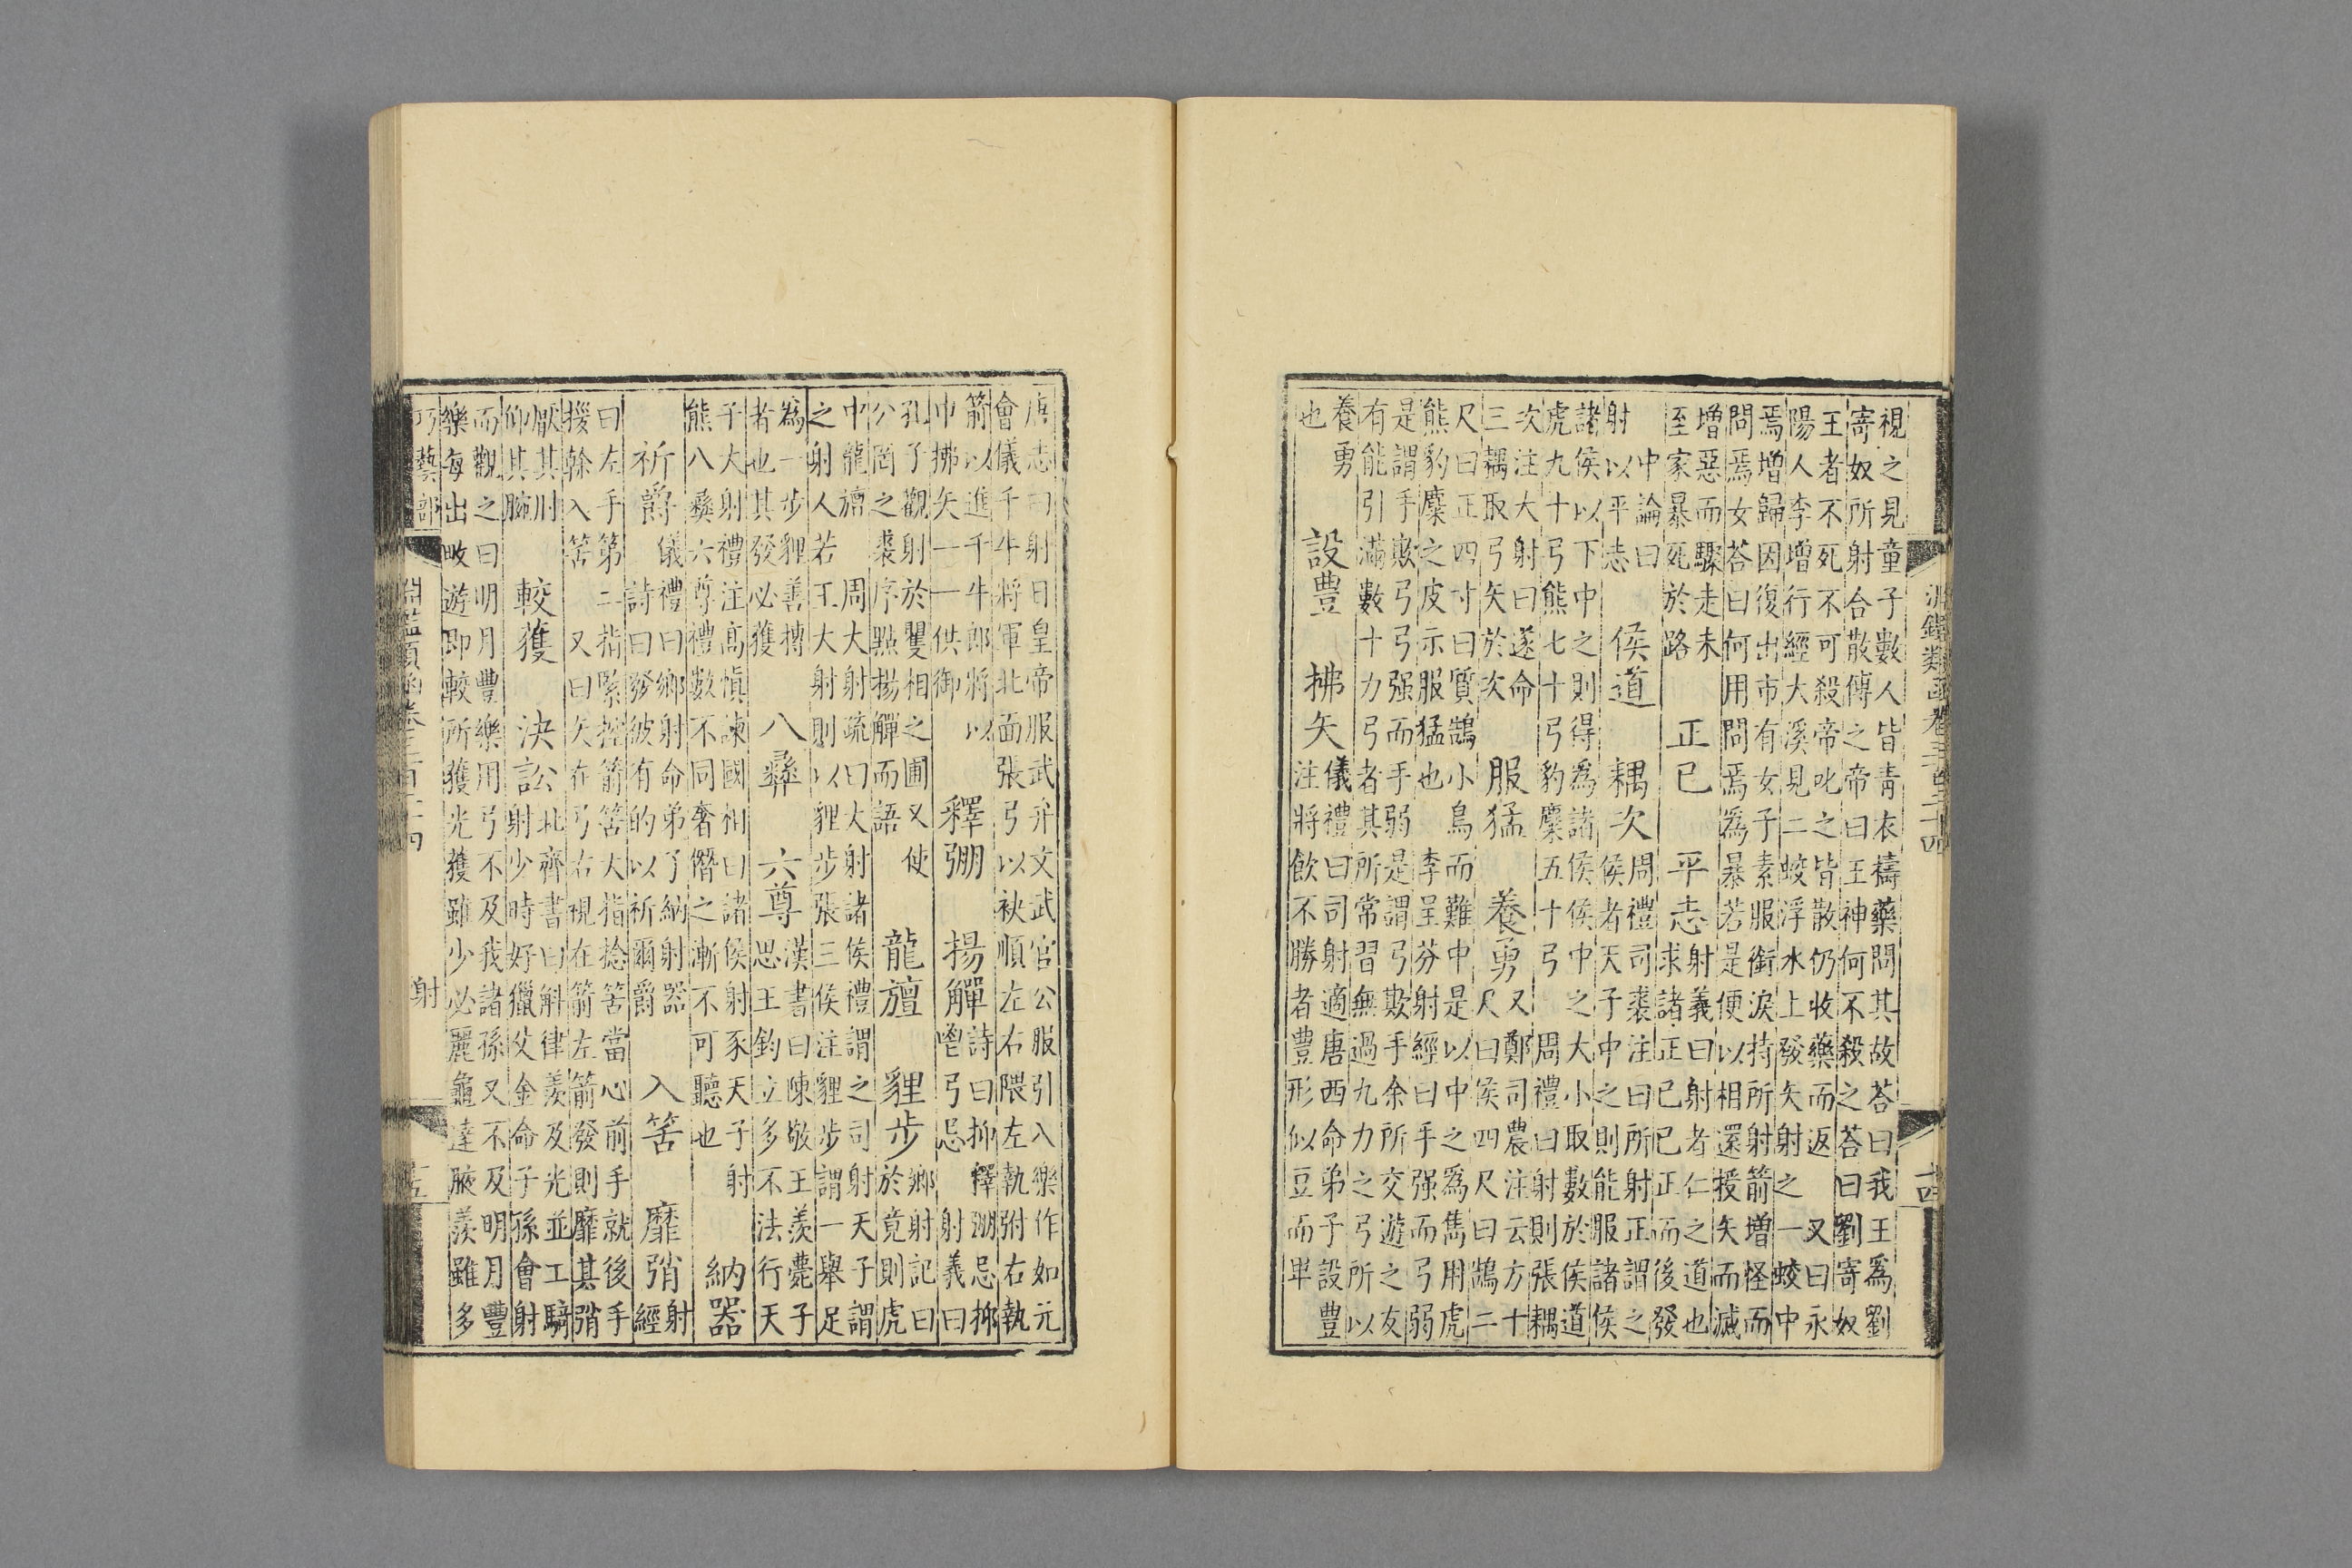 淵鑑類函卷三百二十四 十四
視之見童子數人皆青衣禱藥問其故荅曰我王爲劉
寄奴所射合散傅之帝曰王神何不殺之荅曰劉寄奴
王者不死不可殺帝叱之皆散仍收藥而返 又曰永
陽人李增行經大溪見二蛟浮水上發矢射之一蛟中
焉增歸因復出市有女子素服銜淚持所射箭增怪而
問焉女荅曰何用問焉爲暴若是便以相還援矢而滅
增惡而驟走未
至家暴死於路
正已 平志
射義曰射者仁之道也
求諸正已已正而後發
中論曰
射以平志
侯道 耦次
周禮司裘注曰所射正謂之
侯者天子中之則能服諸侯
諸侯以下中之則得爲諸侯侯中之大小取數於侯道
虎九十弓熊七十弓豹麋五十弓 周禮曰射則張耦
次注大射曰遂命
三耦取弓矢於次
服猛 養勇
又鄭司農注云方十
尺曰侯四尺曰鵠二
尺曰正四寸曰質鵠小鳥而難中是以中之爲雋用虎
熊豹麋之皮示服猛也 李呈芬射經曰手强而弓弱
是謂手欺弓弓强而手弱是謂弓欺手余所交遊之友
有能引滿數十力弓者其所常習無過九力之弓所以
養勇
也
設豊 拂矢
儀禮曰司射適唐西命弟子設豐
注將飲不勝者豐形似豆而卑
唐志曰射日皇帝服武弁文武官公服引入樂作如元
會儀千牛將軍北面張弓以袂順左右隈左執弣右執
箭以進千牛郎將以
巾拂矢一一供御
釋弸 揚觶
詩曰抑釋弸忌抑
鬯弓忌 射義曰
孔子觀射於矍相之圃又使
公罔之裘序點揚觶而語
龍旜 貍步
鄉射記曰
於竟則虎
中龍旜 周大射疏曰大射諸侯禮謂之司射天子謂
之射人若王大射則以貍步張三侯注貍步謂一舉足
爲一步貍善搏
者也其發必獲
八彝 六尊
漢書曰陳敬王羡薨子
思王鈞立多不法行天
子大射禮注高慎諫國相曰諸侯射豕天子射
熊八彝六尊禮數不同奢僭之漸不可聽也
納器
祈爵
儀禮曰鄉射命弟子納射器
詩曰發彼有的以祈爾爵
入筈 靡弰
射
經
曰左手第二指緊控箭筈大指捻筈當心前手就後手
援幹入筈 又曰矢在弓右視在箭左箭發則靡其弰
厭其肘
仰其腕
較獲 決訟
北齊書曰斛律羨及光並工騎
射少時好獵父金命子孫會射
而觀之曰明月豐樂用弓不及我諸孫又不及明月豐
樂每出畋遊即較所獲光獲雖少必麗龜達腋羨雖多
巧藝部 淵鑑類函卷三百二十四 射 十五